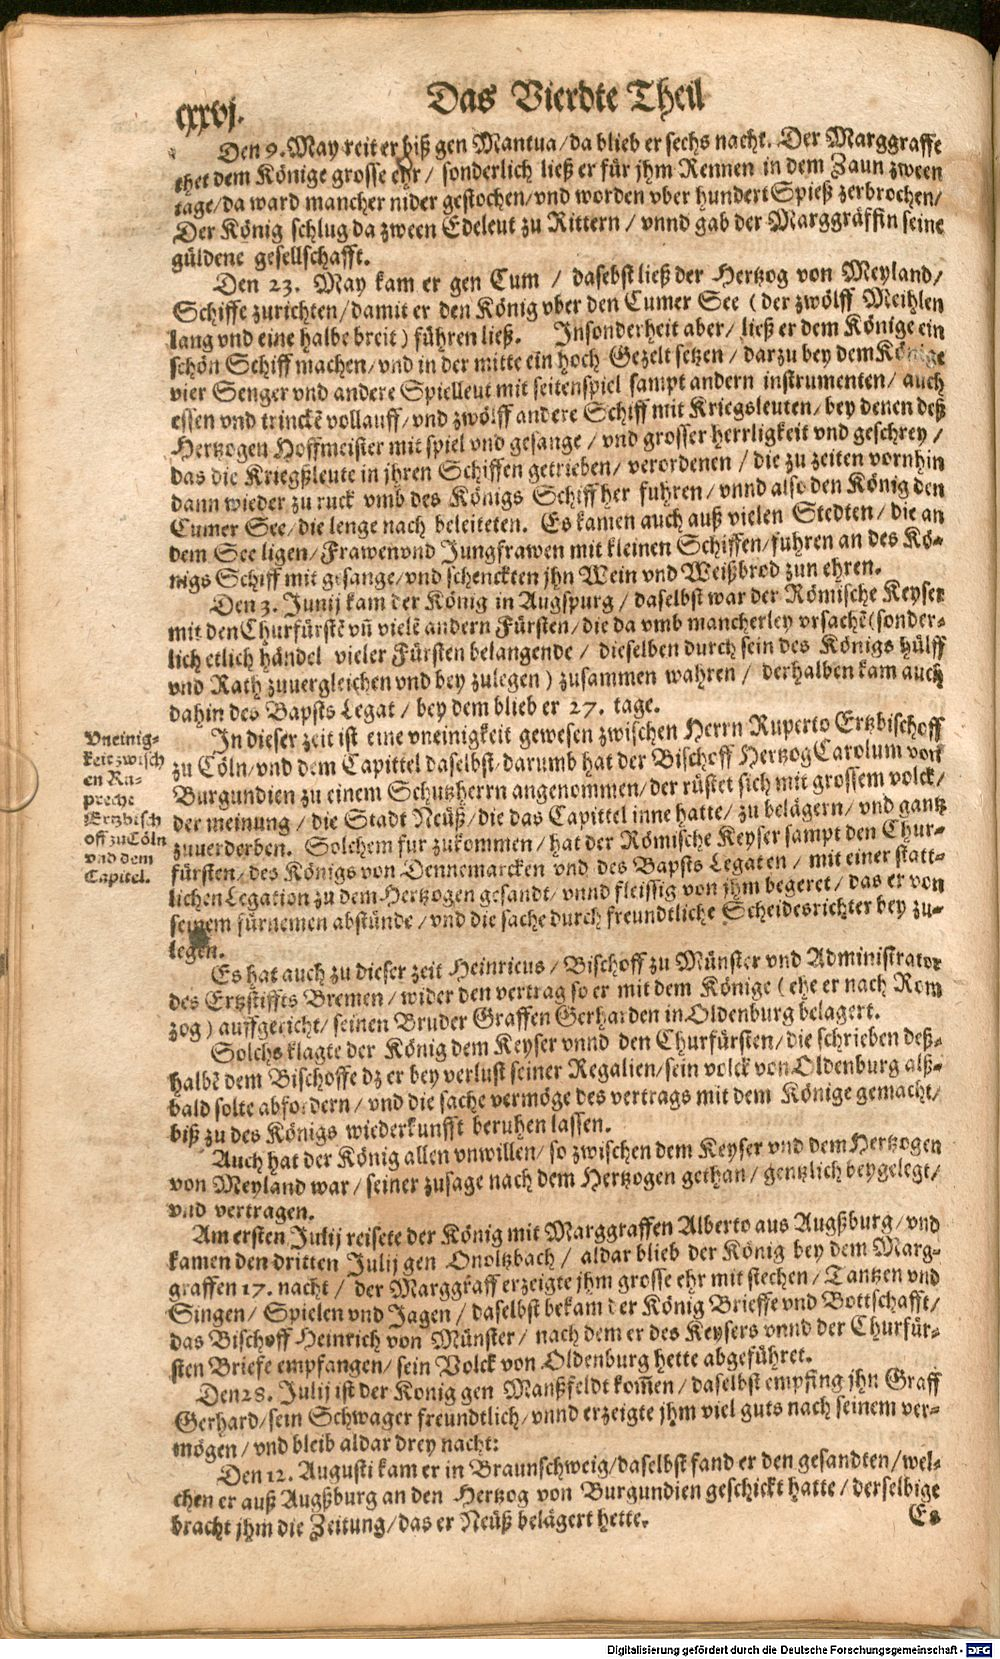 Das Vierdte Theil
cxxvj.
Den 9. May reit er biß gen Mantua / da blieb er sechs nacht. Der Marggraffe
thet dem Könige grosse ehr / sonderlich ließ er für jhm Rennen in dem Zaun zween
tage / da ward mancher nider gestochen / vnd worden vber hundert Spieß zerbrochen /
Der König schlug da zween Edeleut zu Rittern / vnnd gab der Marggräffin seine
güldene gesellschafft.
Den 23. May kam er gen Cum / dasebst ließ der Hertzog von Meyland /
Schiffe zurichten / damit er den König vber den Cumer See ( der zwölff Meihlen
lang vnd eine halbe breit ) führen ließ. Insonderheit aber / ließ er dem Könige ein
schön Schiff machen / vnd in der mitte ein hoch Gezelt setzen / darzu bey dem Könige
vier Senger vnd andere Spielleut mit seitenspiel sampt andern instrumenten / auch
essen vnd trinckē vollauff / vnd zwölff andere Schiff mit Kriegsleuten / bey denen deß
Hertzogen Hoffmeister mit spiel vnd gesange / vnd grosser herrligkeit vnd geschrey /
das die Kriegßleute in jhren Schiffen getrieben / verordenen / die zu zeiten vornhin
dann wieder zu ruck vmb des Königs Schiff her fuhren / vnnd also den König den
Cumer See / die lenge nach beleiteten. Es kamen auch auß vielen Stedten / die an
dem See ligen / Frawen vnd Jungfrawen mit kleinen Schiffen / fuhren an des Kö-
nigs Schiff mit gesange / vnd schenckten jhn Wein vnd Weißbrod zun ehren.
Den 3. Junij kam der König in Augspurg / daselbst war der Römische Keyser
mit den Churfürstē vñ vielē andern Fürsten / die da vmb mancherley vrsachē (sonder-
lich etlich händel vieler Fürsten belangende / dieselben durch sein des Königs hülff
vnd Rath zuuergleichen vnd bey zulegen ) zusammen wahren / derhalben kam auch
dahin des Bapsts Legat / bey dem blieb er 27. tage.
In dieser zeit ist eine vneinigkeit gewesen zwischen Herrn Ruperto Ertzbischoff
zu Cöln / vnd dem Capittel daselbst / darumb hat der Bischoff Hertzog Carolum von
Burgundien zu einem Schutzherrn angenommen / der rüstet sich mit grossem volck /
der meinung / die Stadt Neüß / die das Capittel inne hatte / zu belägern / vnd gantz
zuuerderben. Solchem fur zukommen / hat der Römische Keyser sampt den Chur-
fürsten / des Königs von Dennemarcken vnd des Bapsts Legaten / mit einer statt-
lichen Legation zu dem Hertzogen gesandt / vnnd fleissig von jhm begeret / das er von
seinem fürnemen abstünde / vnd die sache durch freundtliche Scheidesrichter bey zu-
legen.
Vneinig-
keit zwisch
en Ru-
preche
Ertzbisch
off zu Cöln
vnd dem
Capitel.
Es hat auch zu dieser zeit Heinricus / Bischoff zu Münster vnd Administrator
des Ertzstiffts Bremen / wider den vertrag so er mit dem Könige ( ehe er nach Rom
zog ) auffgericht / seinen Bruder Graffen Gerharden in Oldenburg belagert.
Solchs klagte der König dem Keyser vnnd den Churfürsten / die schrieben deß-
halbē dem Bischoffe dz er bey verlust seiner Regalien / sein volck von Oldenburg alß-
bald solte abfordern / vnd die sache vermöge des vertrags mit dem Könige gemacht /
biß zu des Königs wiederkunfft beruhen lassen.
Auch hat der König allen vnwillen / so zwischen dem Keyser vnd dem Hertzogen
von Meyland war / seiner zusage nach dem Hertzogen gethan / gentzlich beygelegt /
vnd vertragen.
Am ersten Julij reisete der König mit Marggraffen Alberto aus Augßburg / vnd
kamen den dritten Julij gen Onoltzbach / aldar blieb der König bey dem Marg-
graffen 17. nacht / der Marggraff erzeigte jhm grosse ehr mit stechen / Tantzen vnd
Singen / Spielen vnd Jagen / daselbst bekam der König Brieffe vnd Bottschafft /
das Bischoff Heinrich von Münster / nach dem er des Keysers vnnd der Churfür-
sten Briefe empfangen / sein Volck von Oldenburg hette abgeführet.
Den 28. Julij ist der Konig gen Manßfeldt kom̄en / daselbst empfing jhn Graff
Gerhard / sein Schwager freundtlich / vnnd erzeigte jhm viel guts nach seinem ver-
mögen / vnd bleib aldar drey nacht:
Den 12. Augusti kam er in Braunschweig / daselbst fand er den gesandten / wel-
chen er auß Augßburg an den Hertzog von Burgundien geschickt hatte / derselbige
bracht jhm die Zeitung / das er Neüß belägert hette.
Es
Digitalisierung gefördert durch die Deutsche Forschungsgemeinschaft - DFG